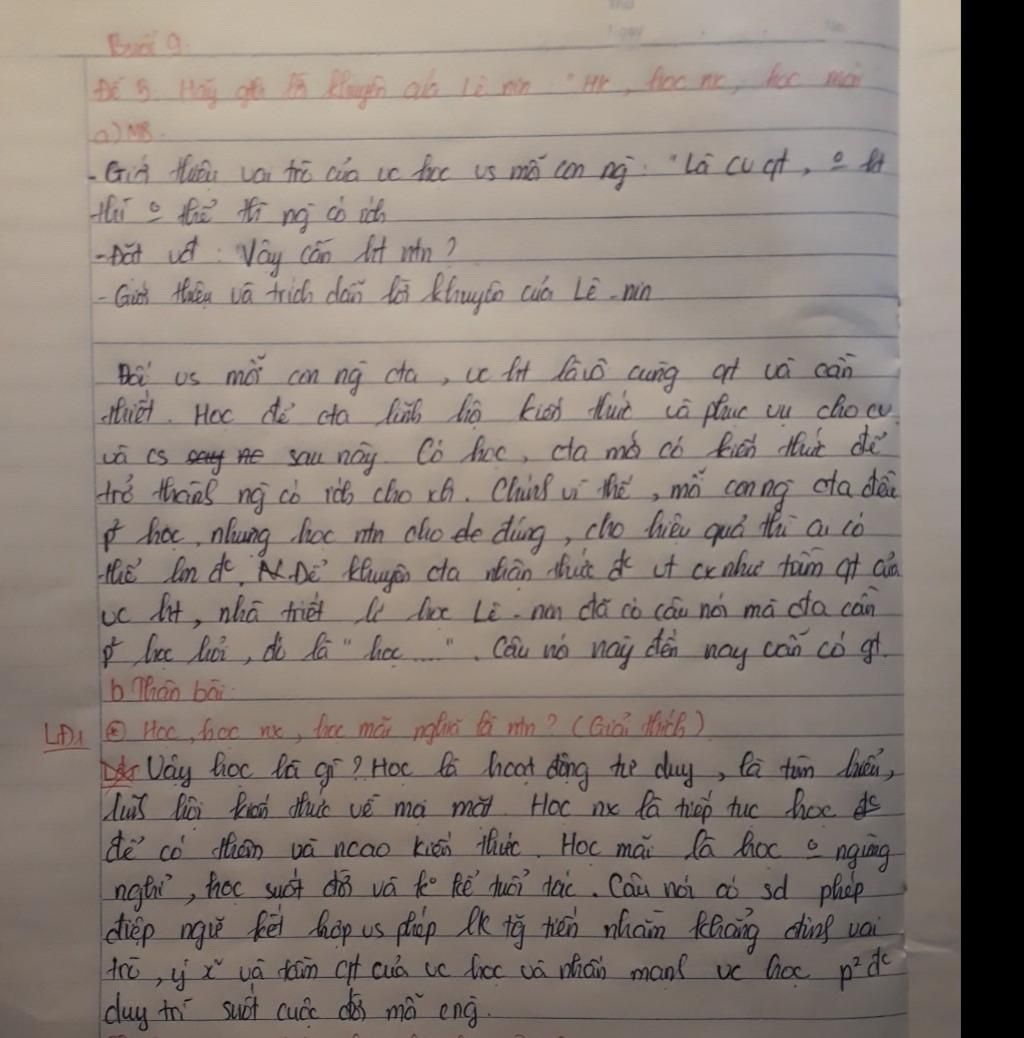 Thứ
Ngày No.
Buổi 9
Đề 5. Hãy gth lời khuyên của Lê nin "Học, học nx, học mãi
a) MB.
- Giới thiệu vai trò của vc học vs mỗi con ng : "Là cv qt, o ht
thì o thể thì ng có ích
- Đặt vđ : Vậy cần ht ntn ?
- Giới thiệu và trích dẫn lời khuyên của Lê - nin
Đối vs mỗi con ng cta, vc ht là vô cùng qt và cần
thiết. Học để cta lĩnh hộ kiến thức và phục vụ cho cv
và cs sau này. Có học, cta mới có kiến thức để
trở thành ng có ích cho xh. Chính vì thế, mỗi con ng cta đều
học, nhưng học ntn cho đúng, cho hiệu quả thì ai có
thể lm đc. Để khuyên cta nhận thức đc vt cx như tầm qt của
vc ht, nhà triết lí học Lê - nin đã có câu nói mà cta cần
học hỏi, đó là " học ..... ". Câu nói này đến nay còn có gt.
b Thân bài.
LĐ1 * Học, học nx, học mãi nghĩa là ntn ? (Giải thích)
Vậy học là gì ? Học là hoạt động tư duy, là tìm hiểu,
lĩnh hội kiến thức về mọi mặt. Học nx là tiếp tục học
để có thêm và ncao kiến thức. Học mãi là học o ngừng
nghỉ, học suốt đời và ko kể tuổi tác. Câu nói có sd phép
điệp ngữ kết hợp vs phép lk tg tiến nhằm khẳng định vai
trò, ý và tầm qt của vc học và nhấn mạnh vc học p² đc
duy trì suốt cuộc đời mỗi cng.